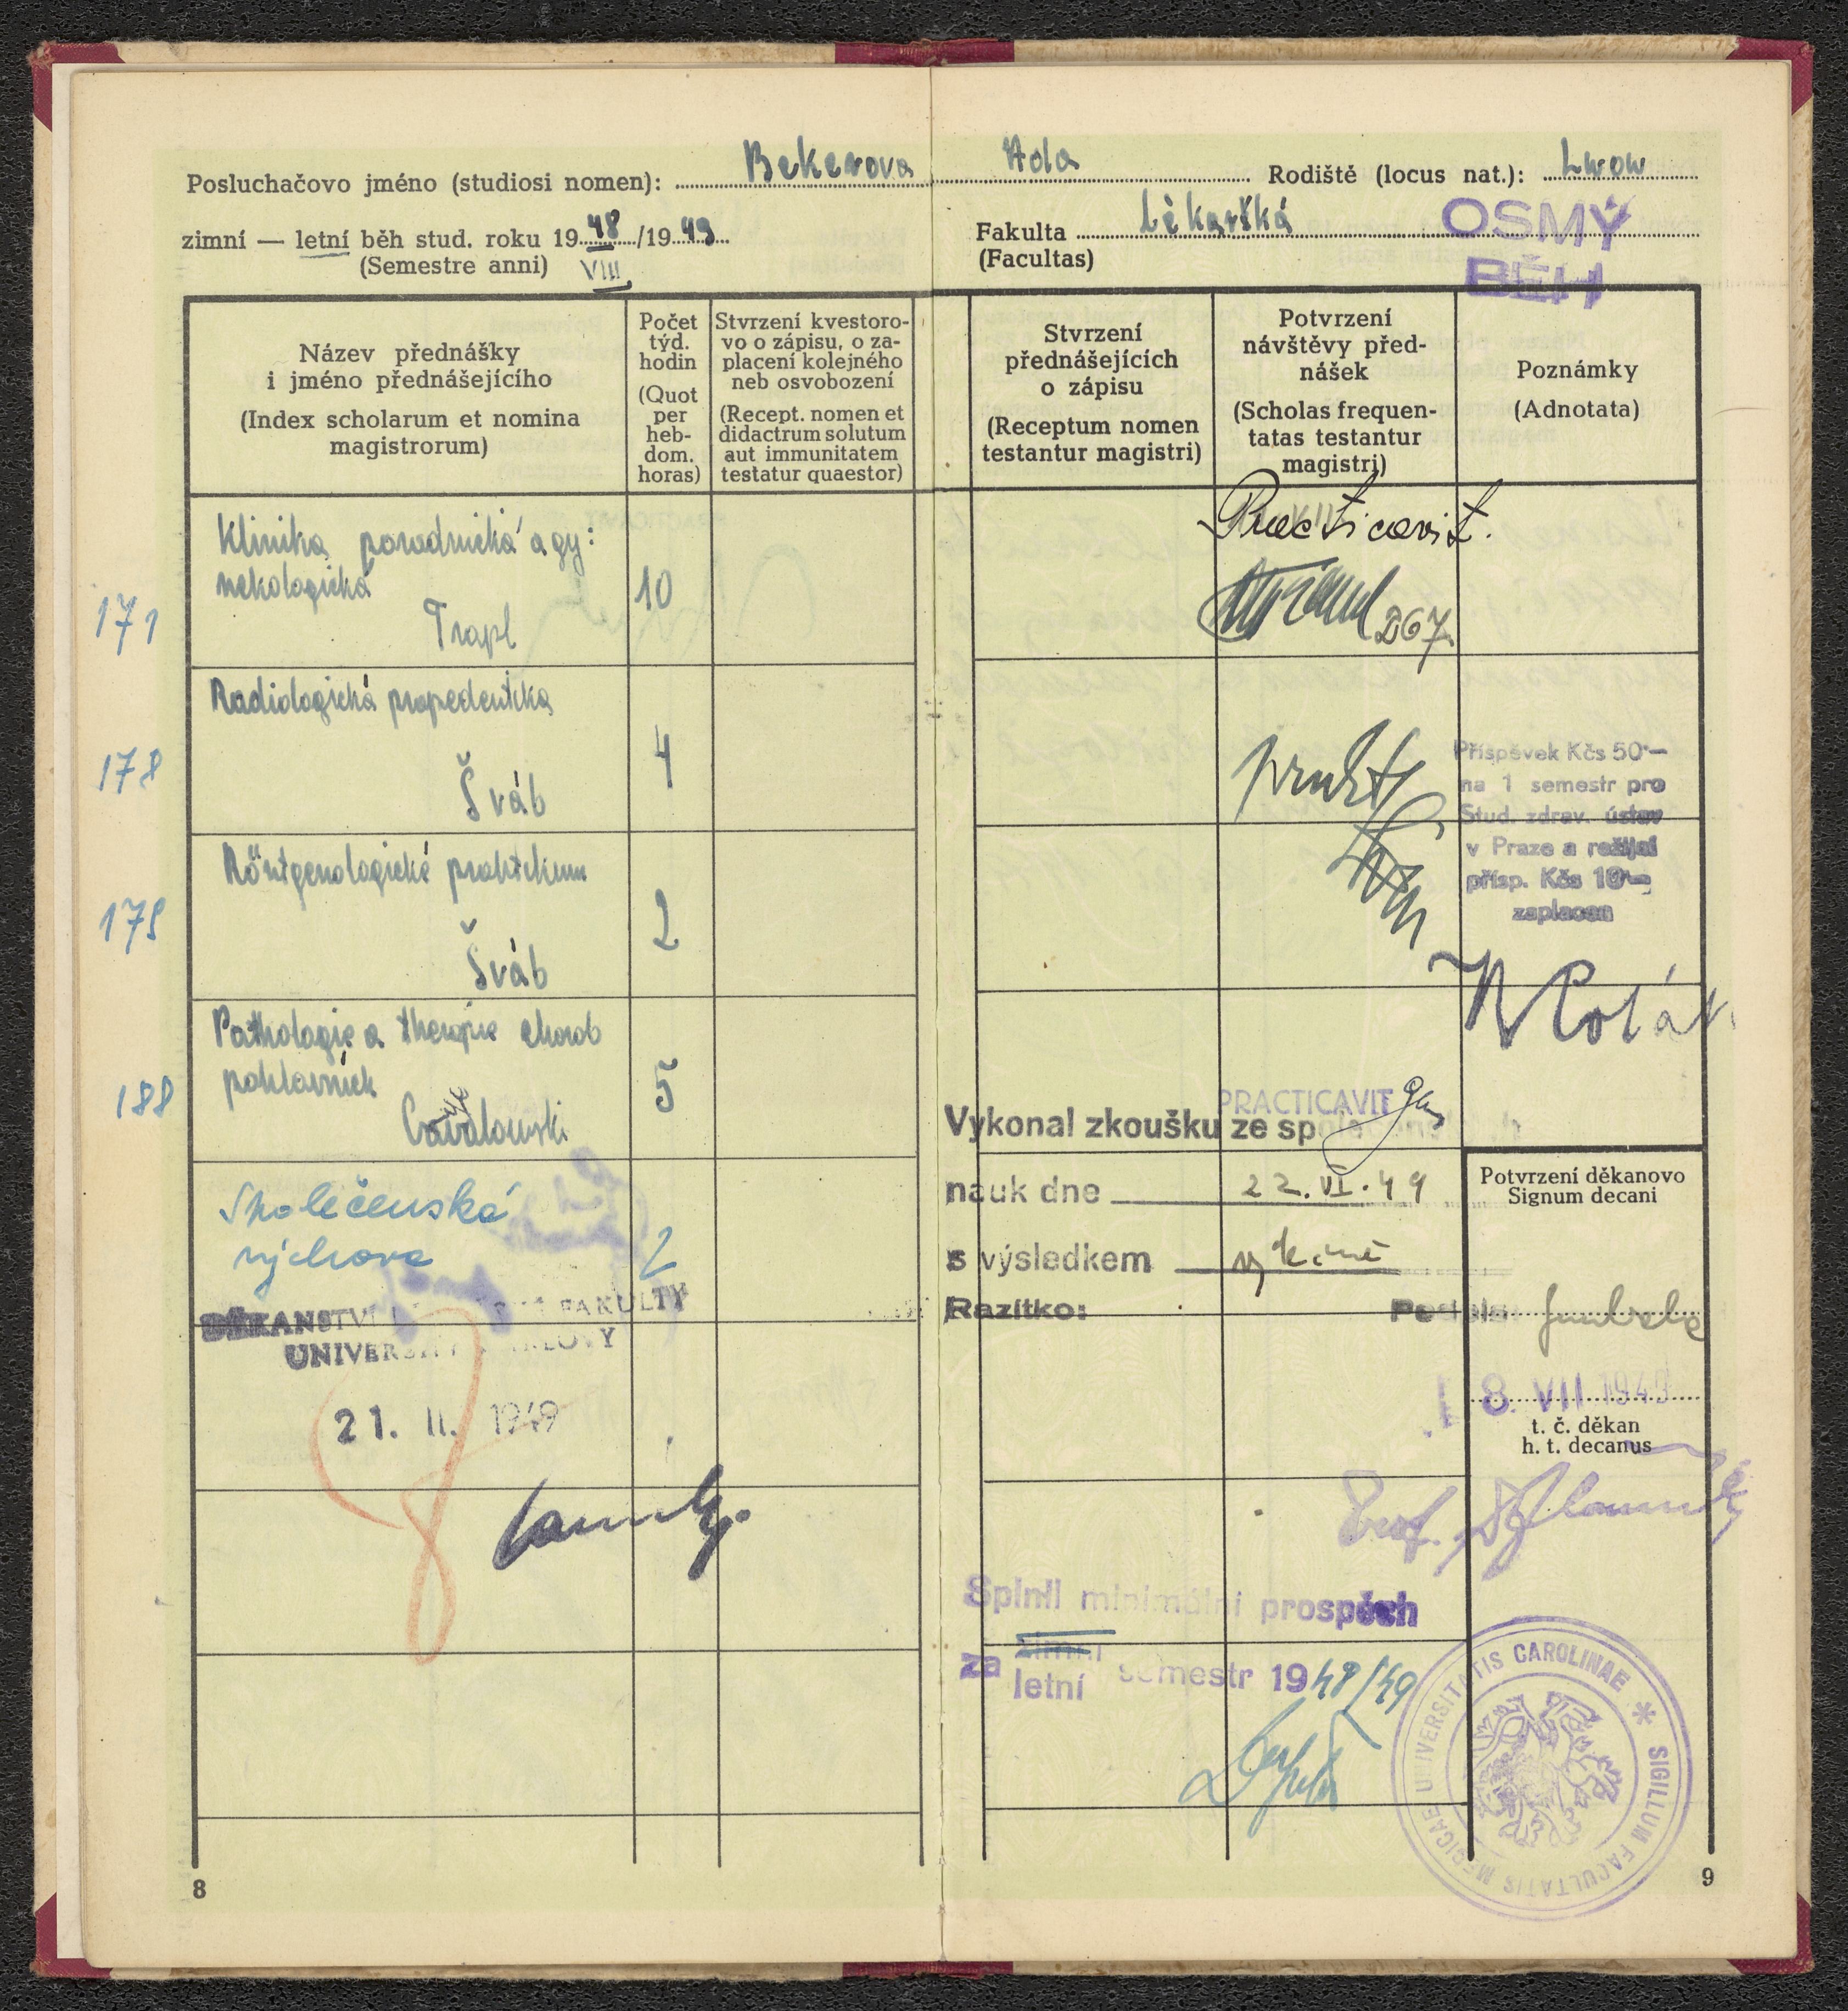 Posluchačovo jméno (studiosi nomen): Bekerova Ada Rodiště (locus nat.): Lwow
zimní — letní běh stud. roku 1948/1949
(Semestre anni) VIII
Fakulta Lékařská
(Facultas)
OSMÝ
BĚH
Název přednášky
i jméno přednášejícího
(Index scholarum et nomina
magistrorum)
Počet
týd.
hodin
(Quot
per
heb-
dom.
horas)
Stvrzení kvestoro-
vo o zápisu, o za-
placení kolejného
neb osvobození
(Recept. nomen et
didactrum solutum
aut immunitatem
testatur quaestor)
Stvrzení
přednášejících
o zápisu
(Receptum nomen
testantur magistri)
Potvrzení
návštěvy před-
nášek
(Scholas frequen-
tatas testantur
magistri)
Poznámky
(Adnotata)
Klinika porodnická a gy:
nekologická
171
Trapl
10
Practicavit.
267
Radiologická propedeutika
178
Šváb
4
Příspěvek Kčs 50·—
na 1 semestr pro
Stud. zdrav. ústav
v Praze a režijní
přísp. Kčs 10·—
zaplacen
Röntgenologické praktikum
179
Šváb
2
Pathologie a therapie chorob
pohlavních
188
5
PRACTICAVIT
Vykonal zkoušku ze
nauk dne 22.VI.49
s výsledkem
Razítko:
Podpis:
Společenská
výchova
2
DĚKANSTVÍ FAKULTY
UNIVERSITY KARLOVY
21. II. 1949
8
Potvrzení děkanovo
Signum decani
8. VII 1949
t. č. děkan
h. t. decanus
Prof.
Splnil minimální prospěch
za zimní
letní semestr 1948/49
UNIVERSITATIS CAROLINAE * SIGILLUM FACULTATIS MEDICAE
8
9